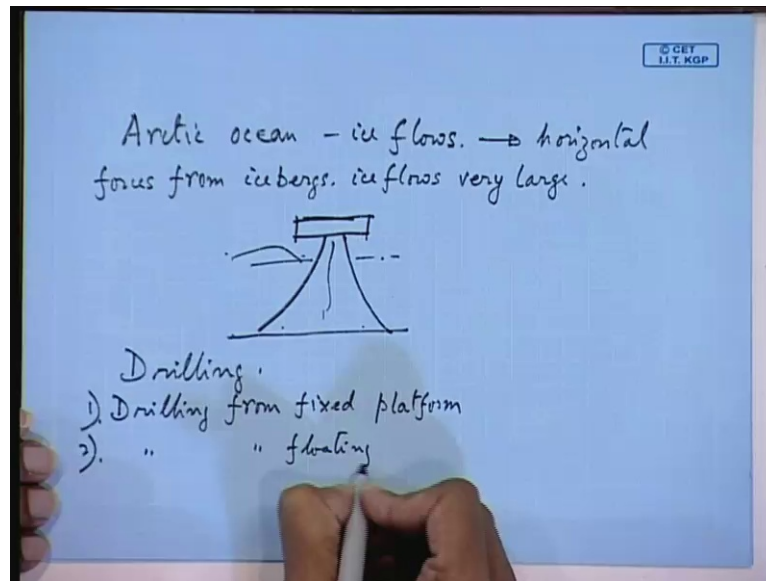 © CET
I.I.T. KGP
Arctic ocean - ice flows. → horizontal
forces from icebergs. ice flows very large.
Drilling.
1). Drilling from fixed platform
2). " " floating